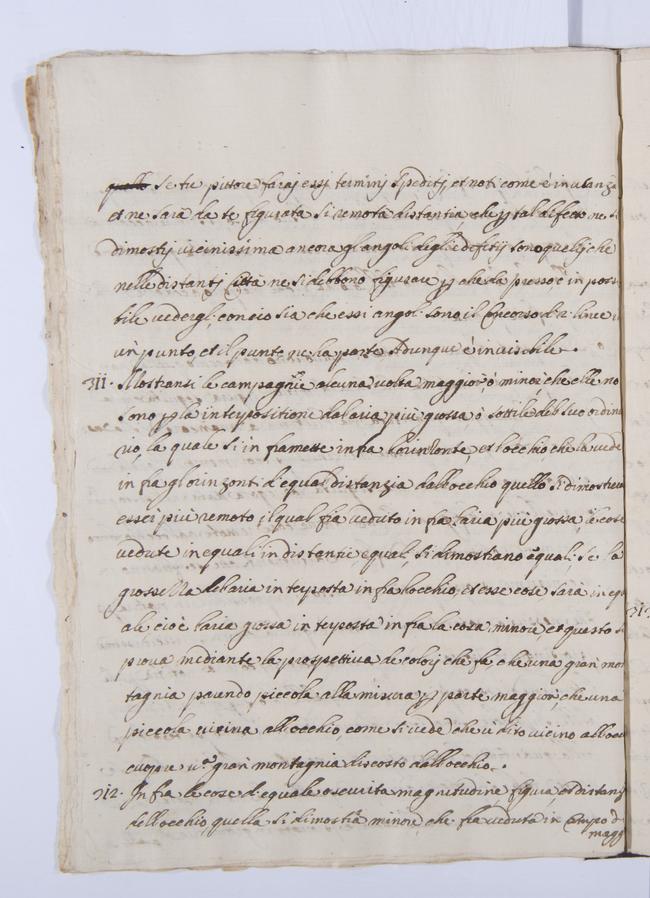 quello Se tu pittore faraj essj terminj speditj, et noti come è in usanza
et ne sarà da te figurata si remota distantia che p tal difetto ne si
dimostrj vicinissima ancora gl'angoli degl'edifitij sono quellj che
nelle distantj città ne si debbono figurare p che da presso è in possi
bile vedergl: concio sia che essi angol: sono il concorso d. 2. linee i
un punto, et il punto ne ha parte Adunque è invisibile.
311. Mostransi le campagnie alcuna volta maggiorj, ò minorj, che elle no
sono p la interpositione dalaria più grossa ò sottile del suo ordina
rio, la quale si in framette infra l'orinzonte, et l'occhio che la vede
in fra gl'orinzonti d'equal distanzia dall'occhio quello si dimostrerà
esser più remoto il qual fia veduto in fra laria più grossa, cose
vedute inequali in distantie equal, si dimostrano equali, se la
grossezza delaria interposta infra l'occhio, et esse cose sarà inequ
ale cioè laria grossa interposta infra la cosa minore et questo si
prova mediante la prospettiva de colorj che fa che una gran mon
tagnia parendo piccola alla misura p parte maggiore, che una
piccola vicina all'occhio, come si vede che un dito vicino all'occ
cuopre u.ª gran montagnia discosto dall'occhio.
312. In fra le cose d'equale oscurita magnitudine, figura, et distantj
dell'occhio, quella si dimostra minore, che fia veduta in campo d
magg